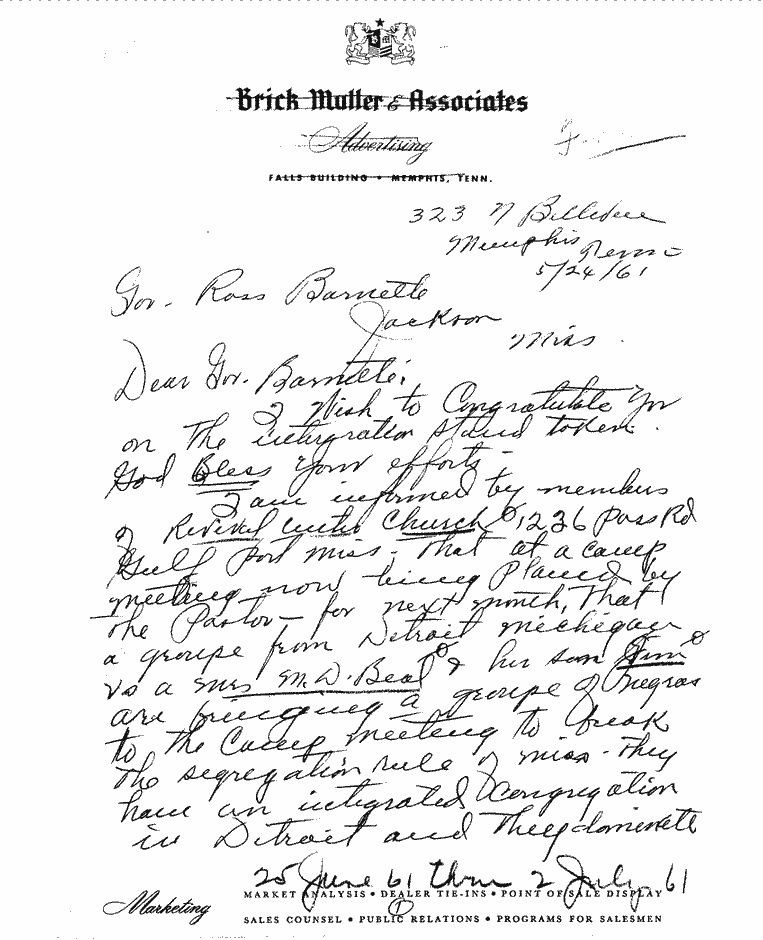 Brick Muller & Associates
Advertising
FALLS BUILDING • MEMPHIS, TENN.
323 N Bellevue
Memphis Tenn
5/24/61
Gov. Ross Barnette
Jackson
Miss.
Dear Gov. Barnette:
I Wish to Congratulate You
on The intergration stand taken.
God Bless Your efforts -
I am informed by members
of Revival Center Church, 1236 Pass Rd
Gulf port miss - That at a camp
meeting now being planed by
The Pastor - for next month, That
a groupe from Detroit michegan
vs a Mrs M.D. Beal & her son Jim
are bringing a groupe of negros
to The Camp meeting to break
The segregation rule of miss - They
have an integrated Congregation
in Detroit and They dominate
25 June 61 thru 2 July 61
Marketing
MARKET ANALYSIS • DEALER TIE-INS • POINT OF SALE DISPLAY
SALES COUNSEL • PUBLIC RELATIONS • PROGRAMS FOR SALESMEN